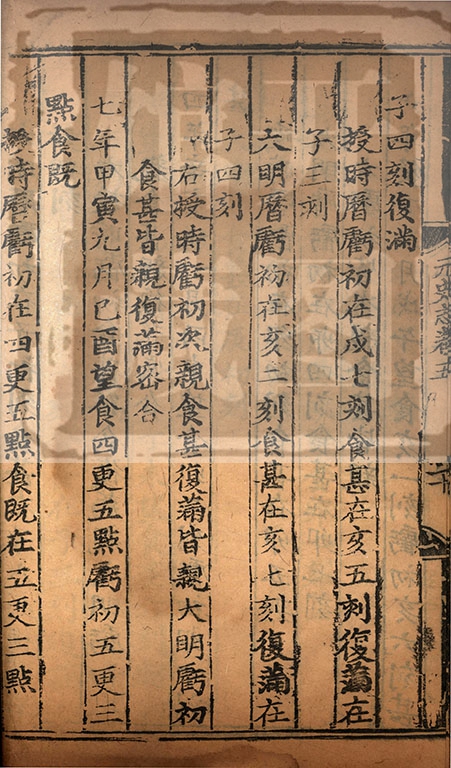 子四刻復滿
授時曆虧初在戌七刻食甚在亥五刻復滿在
子三刻
大明曆虧初在亥二刻食甚在亥七刻復滿在
子四刻
右授時虧初次親食甚復滿皆親大明虧初
食甚皆親復滿密合
七年甲寅九月己酉望食四更五點虧初五更三
點食既
授時曆虧初在四更五點食既在五更三點
元史志卷五